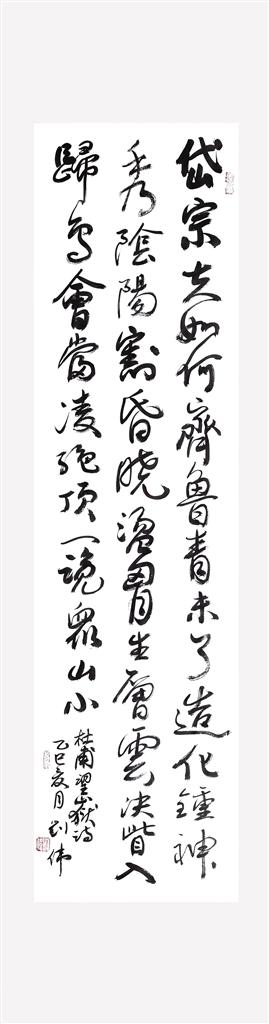 岱宗夫如何齊魯青未了造化鍾神
秀陰陽割昏曉盪胷生層雲决眥入
歸鳥會當凌絕頂一覽眾山小
杜甫望嶽詩
乙巳夏月刘伟